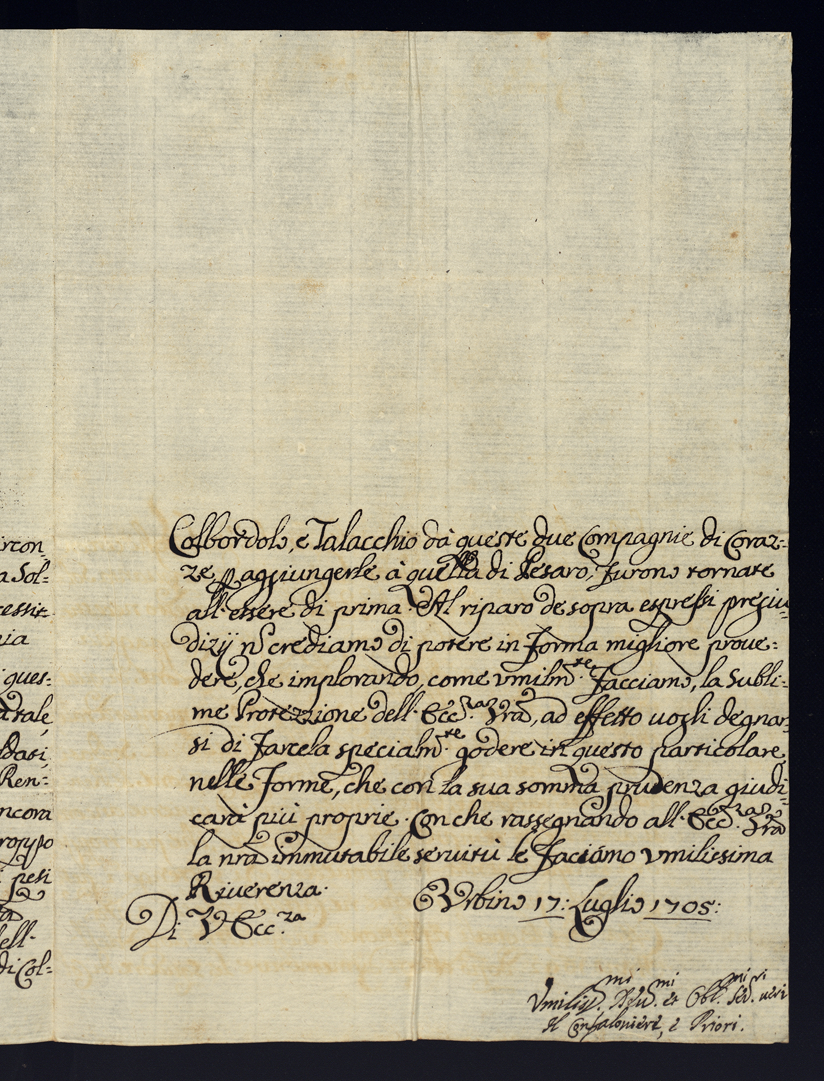 ircon=
a Sol=
cessit
nia
i ques=
tale
ldati
Ren=
ncora
troppo
i pesi
dell.
di Col=
Colbordolo, e Talacchio da queste due Compagnie di Coraz=
ze, p aggiungerle à quella di Pesaro, furono tornate
all'essere di prima. Al riparo de sopra espressi pregiu
dizij nõ crediamo di potere in forma migliore prove=
dere, che implorando, come vmilm.te facciamo, la Subli=
me Protezzione dell. Ecc.za Vrã, ad effetto vogli degnar
si di farcela specialm.te godere in questo particolare
nelle forme, che con la sua somma prudenza giudi=
carà più proprie. Con che rassegnando all. Ecc.za Vrã
la nrã immutabile servitù le facciamo vmilissima
Riverenza.
Urbino 17: Luglio 1705:
Di V Ecc.za
Vmiliss.mi Dev.mi et Obl.mi Ser.ri veri
Il Confaloniere, e Priori.